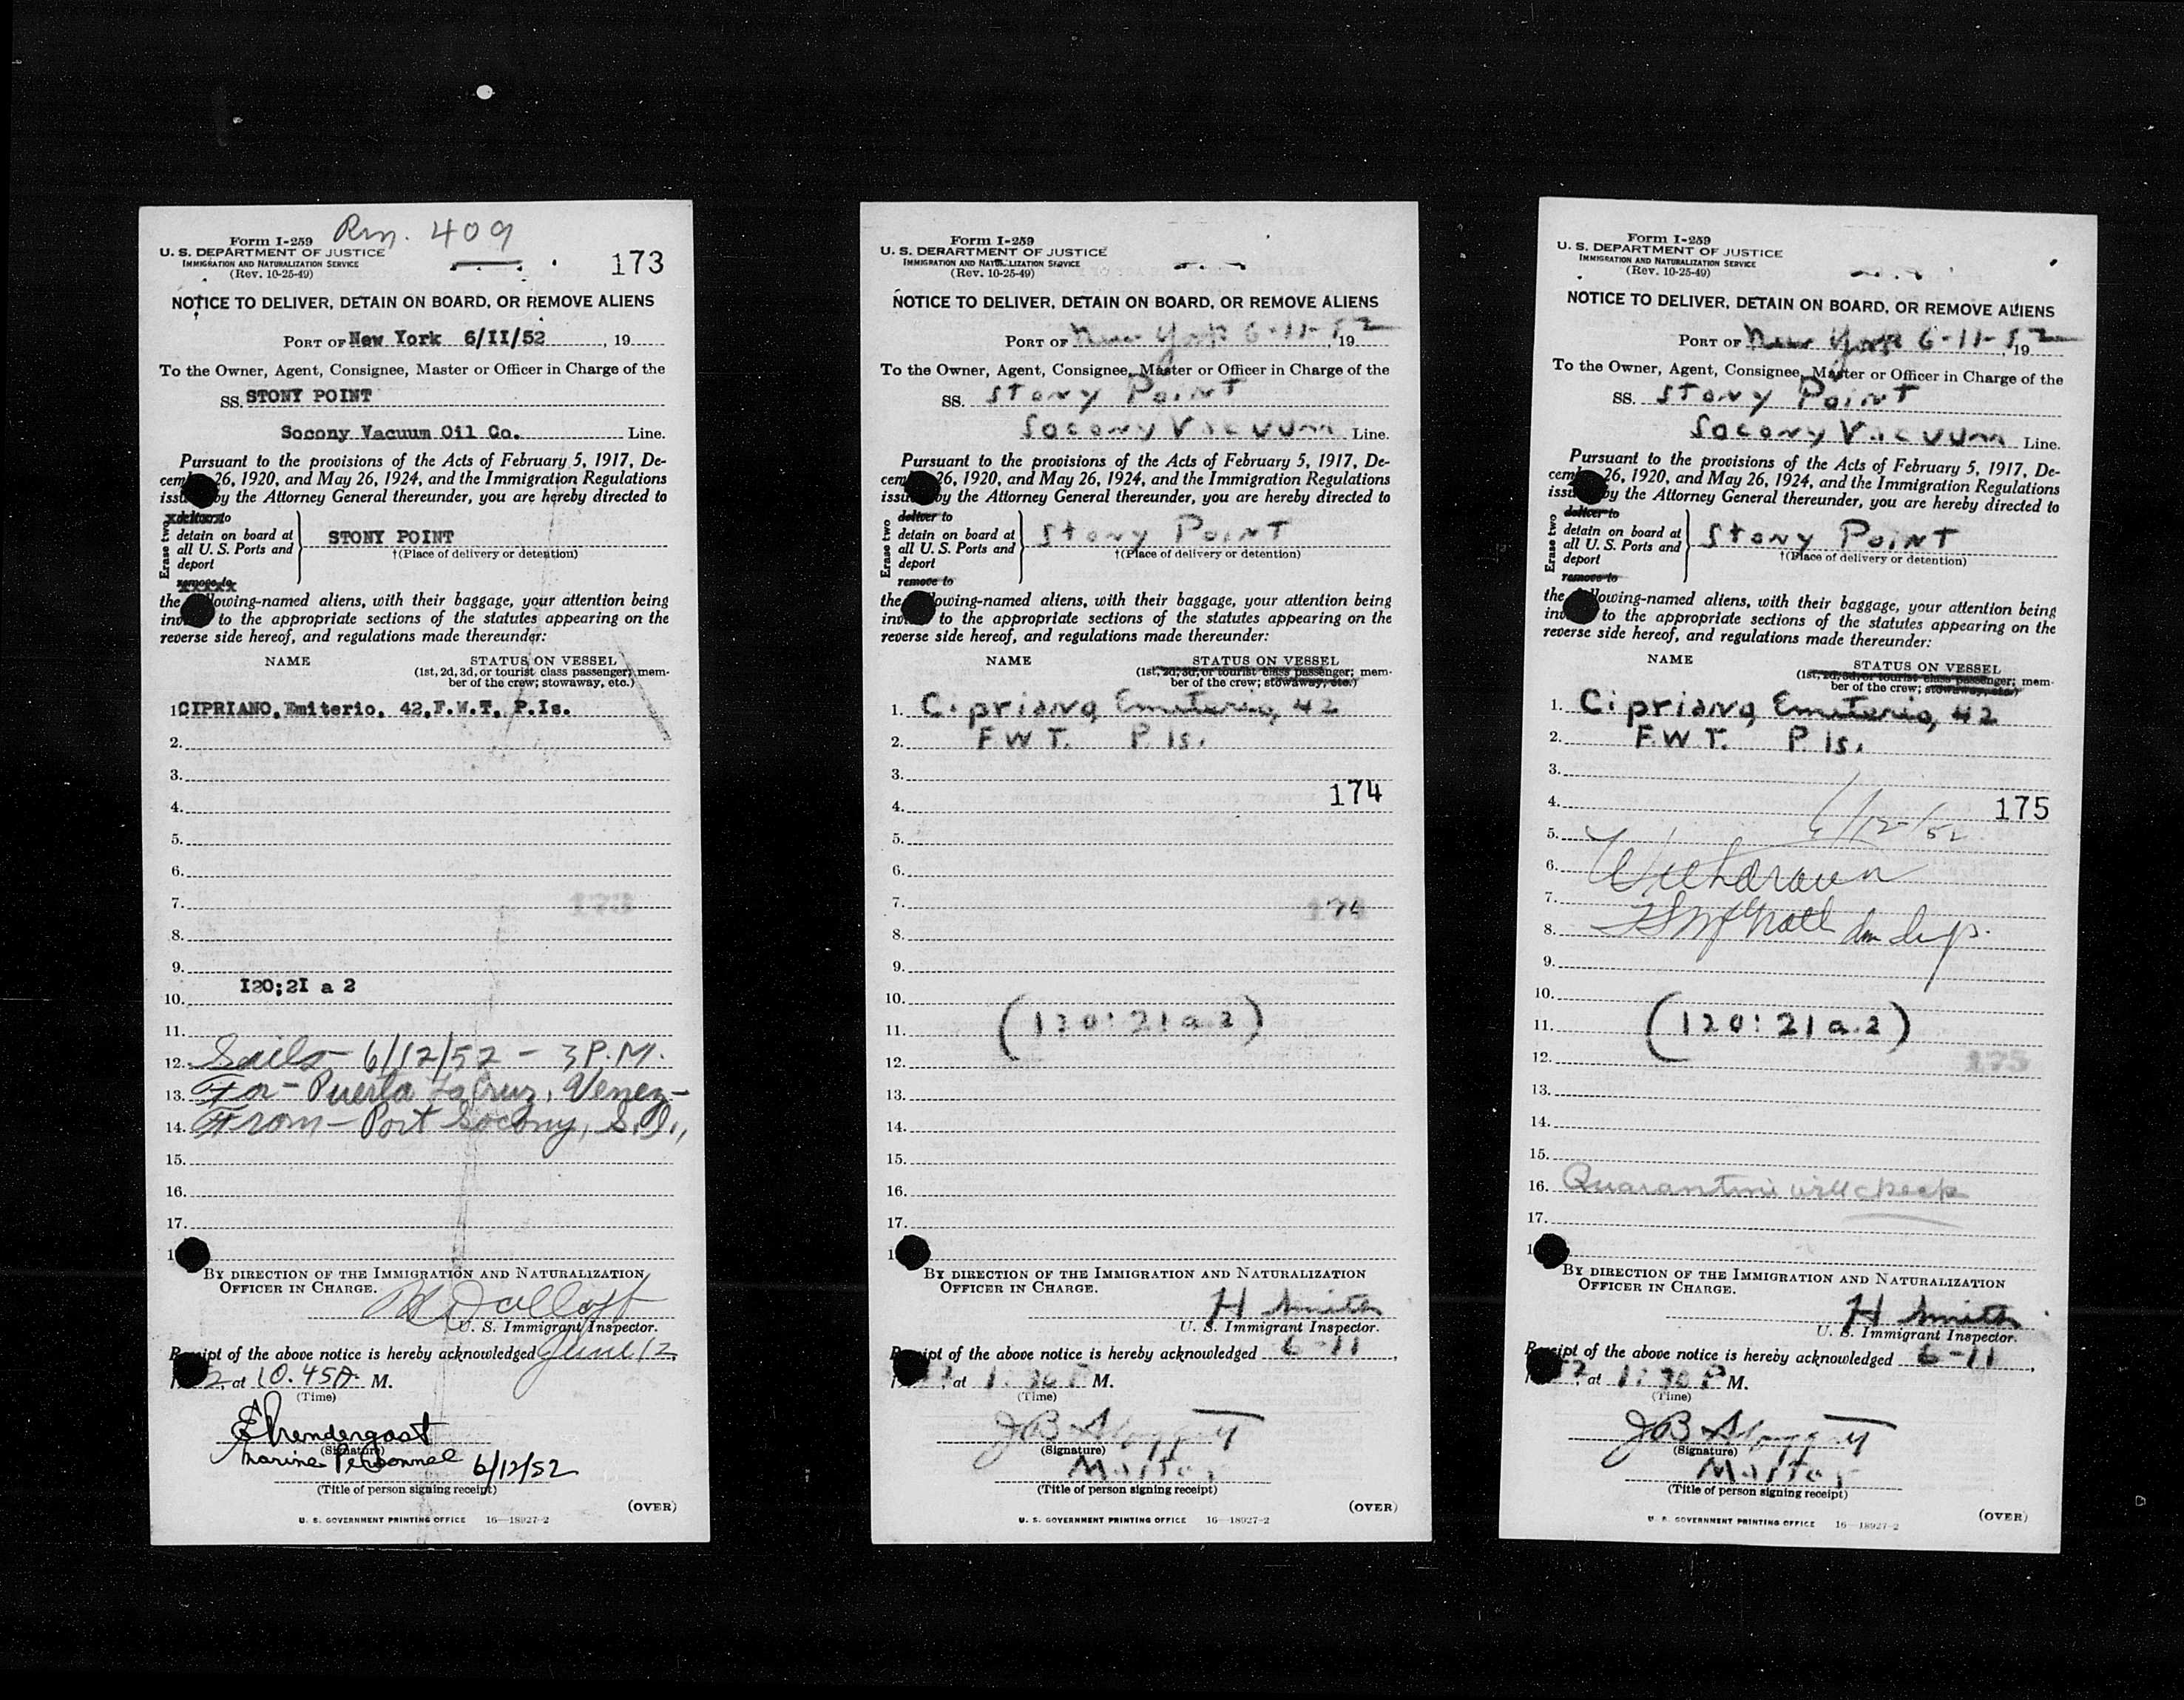 Rm. 409
Form I-259
U. S. DEPARTMENT OF JUSTICE
IMMIGRATION AND NATURALIZATION SERVICE
(Rev. 10-25-49)
173
NOTICE TO DELIVER, DETAIN ON BOARD, OR REMOVE ALIENS
PORT OF New York 6/II/52, 19
To the Owner, Agent, Consignee, Master or Officer in Charge of the
SS. STONY POINT
Socony Vacuum Oil Co. Line.
Pursuant to the provisions of the Acts of February 5, 1917, De-
cem 26, 1920, and May 26, 1924, and the Immigration Regulations
issu by the Attorney General thereunder, you are hereby directed to
Erase two
deliver to
detain on board at
all U. S. Ports and
deport
remove to
STONY POINT
†(Place of delivery or detention)
the lowing-named aliens, with their baggage, your attention being
inv to the appropriate sections of the statutes appearing on the
reverse side hereof, and regulations made thereunder:
NAME STATUS ON VESSEL
(1st, 2d, 3d, or tourist class passenger; mem-
ber of the crew; stowaway, etc.)
1. CIPRIANO, Emiterio, 42, F.W.T. P.Is.
2.
3.
4.
5.
6.
7. 173
8.
9.
I20;2I a 2
10.
11.
12. Sails - 6/12/52 - 3 P.M.
13. For - Puerta La Cruz, Venez-
14. From - Port Socony, S.I.,
15.
16.
17.
1
BY DIRECTION OF THE IMMIGRATION AND NATURALIZATION
OFFICER IN CHARGE.
U. S. Immigrant Inspector.
Receipt of the above notice is hereby acknowledged June 12,
1 2, at 10.45 A. M.
(Time)
E Prendergast
(Signature)
Marine Personnel 6/12/52
(Title of person signing receipt)
(OVER)
U. S. GOVERNMENT PRINTING OFFICE 16—18927-2
Form I-259
U. S. DEPARTMENT OF JUSTICE
IMMIGRATION AND NATURALIZATION SERVICE
(Rev. 10-25-49)
NOTICE TO DELIVER, DETAIN ON BOARD, OR REMOVE ALIENS
PORT OF New York 6-11-52, 19
To the Owner, Agent, Consignee, Master or Officer in Charge of the
SS. Stony Point
Socony Vacuum Line.
Pursuant to the provisions of the Acts of February 5, 1917, De-
cem 26, 1920, and May 26, 1924, and the Immigration Regulations
issu by the Attorney General thereunder, you are hereby directed to
Erase two
deliver to
detain on board at
all U. S. Ports and
deport
remove to
Stony Point
†(Place of delivery or detention)
the lowing-named aliens, with their baggage, your attention being
inv to the appropriate sections of the statutes appearing on the
reverse side hereof, and regulations made thereunder:
NAME STATUS ON VESSEL
(1st, 2d, 3d, or tourist class passenger; mem-
ber of the crew; stowaway, etc.)
1. Cipriano, Emiterio, 42
2. F.W.T. P. Is.
3.
174
4.
5.
6.
7. 174
8.
9.
10.
11. (120:21a.2)
12.
13.
14.
15.
16.
17.
1
BY DIRECTION OF THE IMMIGRATION AND NATURALIZATION
OFFICER IN CHARGE.
H Smith
U. S. Immigrant Inspector.
Receipt of the above notice is hereby acknowledged 6-11,
, at 1:30 P M.
(Time)
(Signature)
Master
(Title of person signing receipt)
(OVER)
U. S. GOVERNMENT PRINTING OFFICE 16—18927-2
Form I-259
U. S. DEPARTMENT OF JUSTICE
IMMIGRATION AND NATURALIZATION SERVICE
(Rev. 10-25-49)
NOTICE TO DELIVER, DETAIN ON BOARD, OR REMOVE ALIENS
PORT OF New York 6-11-52, 19
To the Owner, Agent, Consignee, Master or Officer in Charge of the
SS. Stony Point
Socony Vacuum Line.
Pursuant to the provisions of the Acts of February 5, 1917, De-
cem 26, 1920, and May 26, 1924, and the Immigration Regulations
iss by the Attorney General thereunder, you are hereby directed to
Erase two
deliver to
detain on board at
all U. S. Ports and
deport
remove to
Stony Point
†(Place of delivery or detention)
the lowing-named aliens, with their baggage, your attention being
inv to the appropriate sections of the statutes appearing on the
reverse side hereof, and regulations made thereunder:
NAME STATUS ON VESSEL
(1st, 2d, 3d, or tourist class passenger; mem-
ber of the crew; stowaway, etc.)
1. Cipriano, Emiterio, 42
2. F.W.T. P. Is.
3.
4. 175
5. 6/12/52
6. Withdrawn
7.
8. McGrath
9.
10.
11. (120:21a.2)
12. 175
13.
14.
15.
16. Quarantine will check
17.
1
BY DIRECTION OF THE IMMIGRATION AND NATURALIZATION
OFFICER IN CHARGE.
H Smith
U. S. Immigrant Inspector.
Receipt of the above notice is hereby acknowledged 6-11,
, at 1:30 P M.
(Time)
(Signature)
Master
(Title of person signing receipt)
(OVER)
U. S. GOVERNMENT PRINTING OFFICE 16—18927-2